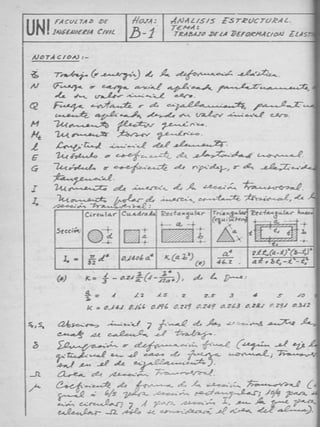 UNI FACULTAD DE INGENIERIA CIVIL
HOJA: B-1
ANALISIS ESTRUCTURAL
TEMA: TRABAJO DE LA DEFORMACION ELAST
NOTACION:-
Trabajo (o energía) de la deformación elástica.
N Fuerza o carga axial aplicada paulatinamente,
de un valor inicial cero.
Q Fuerza cortante o de cizallamiento, paulatina
mente aplicada desde un valor inicial cero.
M Momento flector genérico.
Mt Momento torsor genérico.
l Longitud inicial del elemento.
E Módulo o coeficiente de elasticidad normal.
G Módulo o coeficiente de rigidez, o de elasticidad
tangencial.
I Momento de inercia de la sección transversal.
Io Momento polar de inercia, constante torsional, de la
sección transversal:
Circular Cuadrada Rectangular Triangular Rectangular hueco
(equilátero)
Sección
Io = π/32 d⁴ 0,1406 a⁴ K(a b³) (*) a⁴/46.2
(*) K = 1/3 - 0.21 b/a (1 - b⁴/12a⁴), de la que:
a/b = 1 1.2 1.5 2 2.5 3 4 5 10
K = 0.141 0.166 0.196 0.229 0.249 0.263 0.281 0.291 0.312
S₁,S₂ Abscisas inicial y final de las secciones entre las
cuales se calcula el trabajo.
δ Elongación o deformación final (según el eje lon
gitudinal en el caso de fuerza normal, transver
sal en el de cizallamiento).
Ω Area de sección transversal.
μ Coeficiente de forma de la sección transversal (
igual a 6/5 para sección rectangular; 10/9 para sec
ción circular; y 1 para sección I, en la que para
calcular Ω sólo se considerará el área del alma).